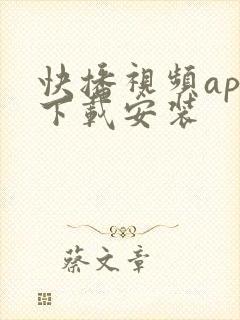 快播視頻ap
下載安裝
蔡文章